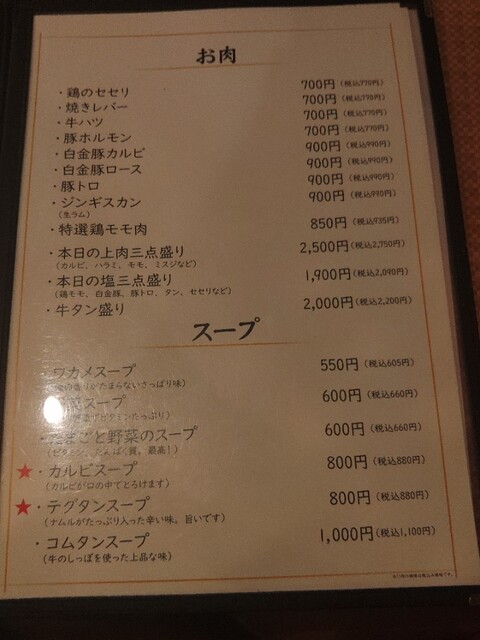 お肉
・鶏のセセリ 700円(税込770円)
・焼きレバー 700円(税込770円)
・牛ハツ 700円(税込770円)
・豚ホルモン 700円(税込770円)
・白金豚カルビ 900円(税込990円)
・白金豚ロース 900円(税込990円)
・豚トロ 900円(税込990円)
・ジンギスカン 900円(税込990円)
(生ラム)
・特選鶏モモ肉 850円(税込935円)
・本日の上肉三点盛り 2,500円(税込2,750円)
(カルビ、ハラミ、モモ、ミスジなど)
・本日の塩三点盛り 1,900円(税込2,090円)
(鶏モモ、白金豚、豚トロ、タン、セセリなど)
・牛タン盛り 2,000円(税込2,200円)
スープ
ワカメスープ 550円(税込605円)
香りがたまらないさっぱり味)
菜スープ 600円(税込660円)
ビタミンたっぷり)
・たまごと野菜のスープ 600円(税込660円)
(ビタミン、たんぱく質、最高!)
★・カルビスープ 800円(税込880円)
(カルビが口の中でとろけます)
★・テグタンスープ 800円(税込880円)
(ナムルがたっぷり入った辛い味。旨いです)
・コムタンスープ 1,000円(税込1,100円)
(牛のしっぽを使った上品な味)